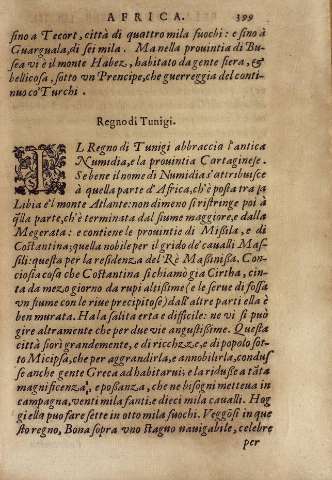 AFRICA. 399
sino a Tecort, città di quattro mila fuochi: e sino à
Guarguala, di sei mila. Ma nella prouintia di Bu-
gea vi è il monte Habez, habitato da gente fiera, &
bellicosa, sotto vn Prencipe, che guerreggia del conti-
nuo co' Turchi.
Regno di Tunigi.
IL Regno di Tunigi abbraccia l'antica
Numidia, e la prouintia Cartaginese.
Se bene il nome di Numidia s'attribuisce
à quella parte d'Africa, ch'è posta tra la
Libia e'l monte Atlante: non dimeno si ristringe poi à
q̃lla parte, ch'è terminata dal fiume maggiore, e dalla
Megerata: e contiene le prouintie di Missila, e di
Costantina; quella nobile per il grido de' caualli Mas-
sili: questa per la residenza del Rè Massinissa. Con-
ciosia cosa che Costantina si chiamò gia Cirtha, cin-
ta da mezo giorno da rupi altissime (e le serue di fossa
vn fiume con le riue precipitose) dall'altre parti ella è
ben murata. Ha la salita erta e difficile: ne vi si può
gire altramente che per due vie angustissime. Questa
città fiorì grandemente, e di ricchezze, e di popolo sot-
to Micipsa, che per aggrandirla, e annobilirla, condus
se anche gente Greca ad habitarui: e la ridusse a tãta
magnificenza, e possanza, che ne bisogni metteua in
campagna, venti mila fanti, e dieci mila caualli. Hog
gi ella può fare sette in otto mila fuochi. Veggõsi in que
sto regno, Bona sopra vno stagno nauigabile, celebre
per